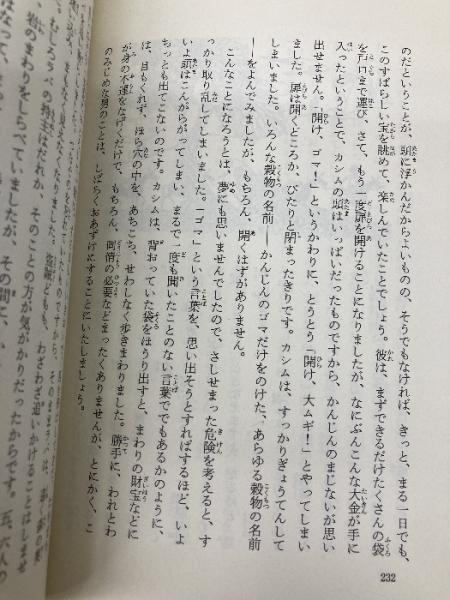 のだということが、頭に浮かんだからよいものの、そうでもなければ、きっと、まる一日でも、
このすばらしい宝を眺めて、楽しんでいたことでしょう。彼は、まずできるだけたくさんの袋
を戸口まで運び、さて、もう一度扉を開けることになりましたが、なにぶんこんな大金が手に
入ったということで、カシムの頭はいっぱいだったものですから、かんじんのまじないが思い
出せません。「開け、ゴマ!」というかわりに、とうとう「開け、大ムギ!」とやってしまい
ました。扉は開くどころか、ぴたりと閉まったきりです。カシムは、すっかりぎょうてんして
しまいました。いろんな穀物の名前――かんじんのゴマだけをのけた、あらゆる穀物の名前
――をよんでみましたが、もちろん、開くはずがありません。
こんなことになろうとは、夢にも思いませんでしたので、さしせまった危険を考えると、す
っかり取り乱してしまいました。「ゴマ」という言葉を、思い出そうとすればするほど、いよ
いよ頭はこんがらがってしまい、まるで一度も聞いたことのない言葉ででもあるかのように、
ちっとも出てこないのです。カシムは、背おっていた袋をほうり出すと、まわりの財宝などに
は、目もくれず、ほら穴の中を、あちこち、せわしなく歩きまわりました。勝手に、われとわ
が身の不運をなげくだけで、もちろん、同情の必要などまったくありませんが、とにかく、こ
のみじめな男のことは、しばらくおあずけにすることにいたしましょう。
232